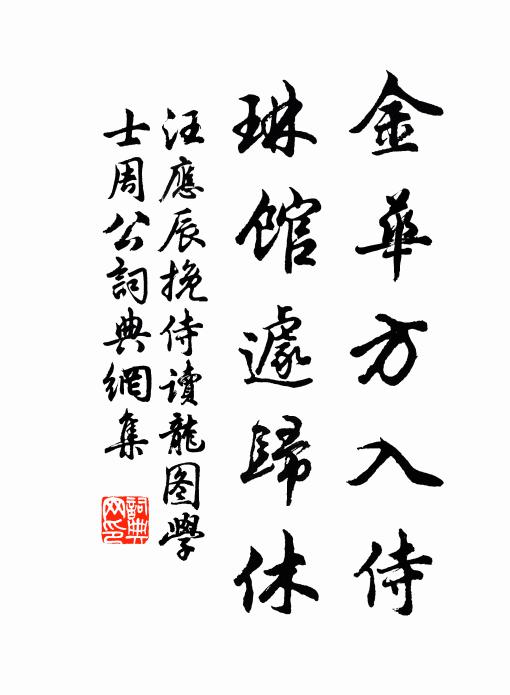 金華方入侍
琳館遽歸休
汪應辰挽侍讀龍图學
士周公詞典網集
詞典網印